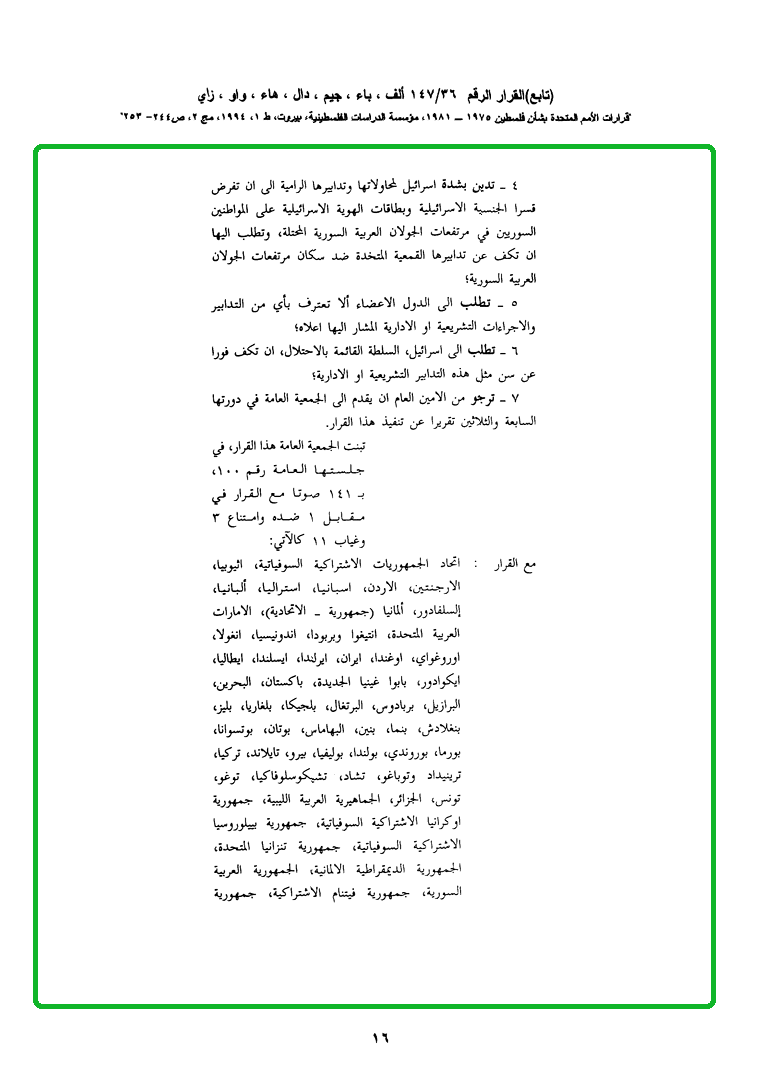 (تابع)القرار الرقم ١٤٧/٣٦ ألف ، باء ، جيم ، دال ، هاء ، واو ، زاي
"قرارات الأمم المتحدة بشأن فلسطين ١٩٧٥ ــ ١٩٨١، مؤسسة الدراسات الفلسطينية، بيروت، ط ١، ١٩٩٤، مج ٢، ص٢٤٤- ٢٥٣"
٤ ــ تدين بشدة اسرائيل لمحاولاتها وتدابيرها الرامية الى ان تفرض
قسرا الجنسية الاسرائيلية وبطاقات الهوية الاسرائيلية على المواطنين
السوريين في مرتفعات الجولان العربية السورية المحتلة، وتطلب اليها
ان تكف عن تدابيرها القمعية المتخذة ضد سكان مرتفعات الجولان
العربية السورية؛
٥ ــ تطلب الى الدول الاعضاء ألا تعترف بأي من التدابير
والاجراءات التشريعية او الادارية المشار اليها اعلاه؛
٦ ــ تطلب الى اسرائيل، السلطة القائمة بالاحتلال، ان تكف فورا
عن سن مثل هذه التدابير التشريعية او الادارية؛
٧ ــ ترجو من الامين العام ان يقدم الى الجمعية العامة في دورتها
السابعة والثلاثين تقريرا عن تنفيذ هذا القرار.
تبنت الجمعية العامة هذا القرار، في
جلستها العامة رقم ١٠٠،
بـ ١٤١ صوتا مع القرار في
مقابل ١ ضده وامتناع ٣
وغياب ١١ كالآتي:
مع القرار : اتحاد الجمهوريات الاشتراكية السوفياتية، اثيوبيا،
الارجنتين، الاردن، اسبانيا، استراليا، ألبانيا،
إلسلفادور، ألمانيا (جمهورية ــ الاتحادية)، الامارات
العربية المتحدة، انتيغوا وبربودا، اندونيسيا، انغولا،
اوروغواي، اوغندا، ايران، ايرلندا، ايسلندا، ايطاليا،
ايكوادور، بابوا غينيا الجديدة، باكستان، البحرين،
البرازيل، بربادوس، البرتغال، بلجيكا، بلغاريا، بليز،
بنغلادش، بنما، بنين، البهاماس، بوتان، بوتسوانا،
بورما، بوروندي، بولندا، بوليفيا، بيرو، تايلاند، تركيا،
ترينيداد وتوباغو، تشاد، تشيكوسلوفاكيا، توغو،
تونس، الجزائر، الجماهيرية العربية الليبية، جمهورية
اوكرانيا الاشتراكية السوفياتية، جمهورية بييلوروسيا
الاشتراكية السوفياتية، جمهورية تنزانيا المتحدة،
الجمهورية الديمقراطية الالمانية، الجمهورية العربية
السورية، جمهورية فيتنام الاشتراكية، جمهورية
١٦